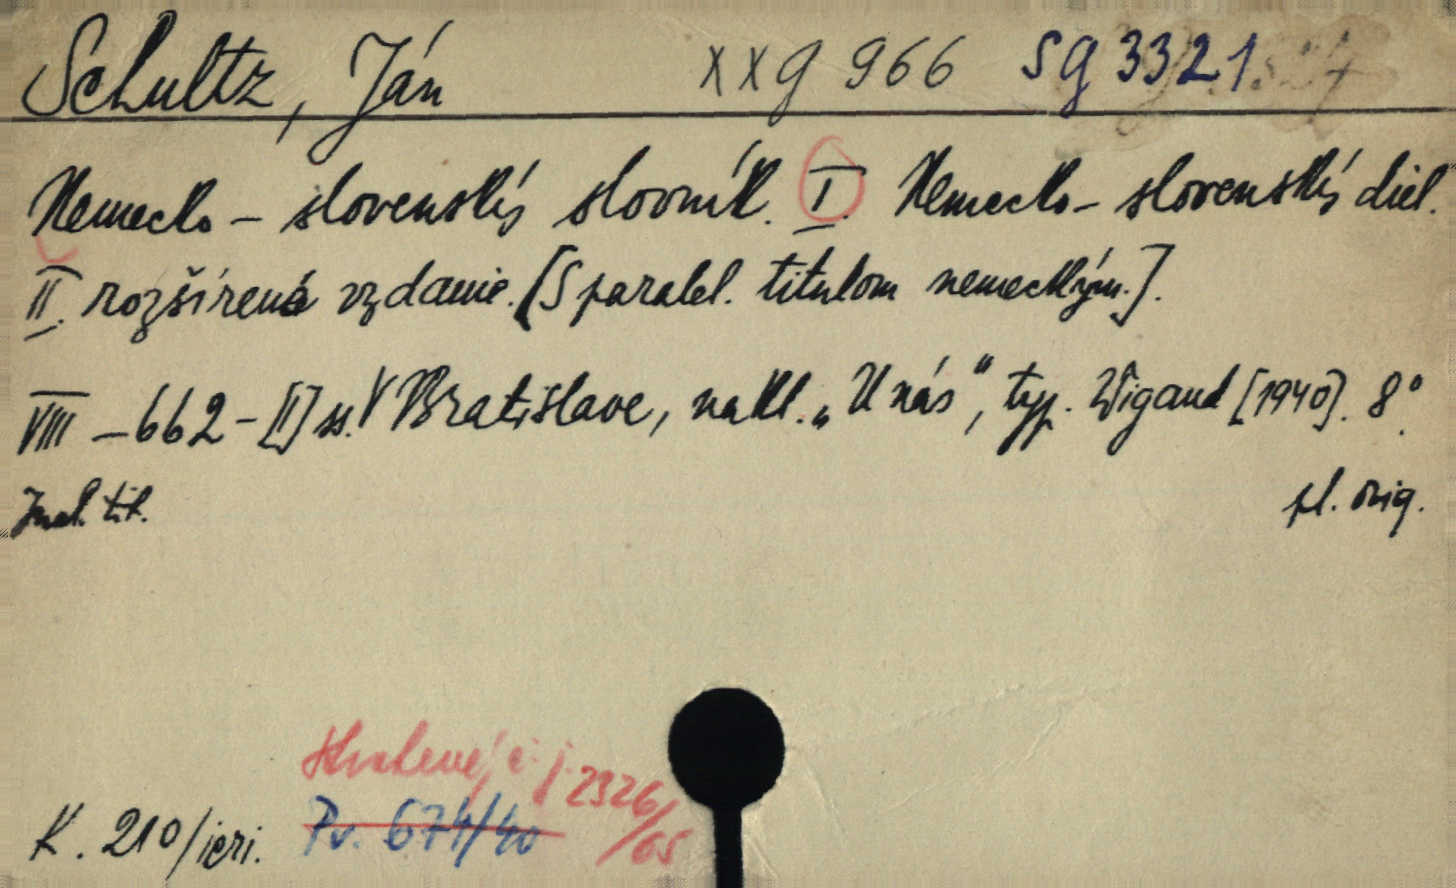 Schultz, Ján XXG 966 SG 3321
Nemecko-slovenský slovník. I. Nemecko-slovenský diel.
II. rozšírené vydanie. [S paralel. titulom nemeckým.].
VIII-662-[I] ss. V Bratislave, nakl. „U nás", typ. Wigand [1940]. 8°.
tit. pl. orig.
č. j. 2326/65
K. 210/ Pr. 674/40